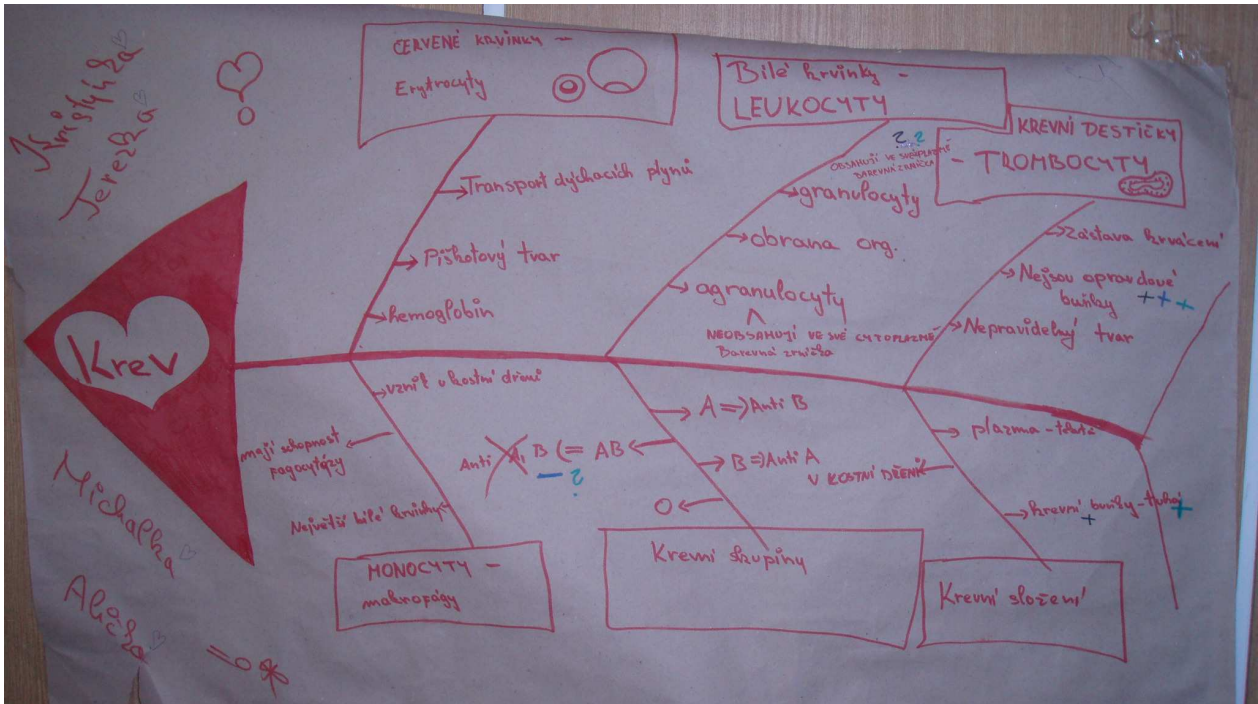 Kristýnka
Terezka
ČERVENÉ KRVINKY –
Erytrocyty
Transport dýchacích plynů
Piškotový tvar
hemoglobin
Bílé krvinky –
LEUKOCYTY
? ?
OBSAHUJÍ VE SVÉ PLAZMĚ
BAREVNÁ ZRNÍČKA
granulocyty
obrana org.
agranulocyty
NEOBSAHUJÍ VE SVÉ CYTOPLAZMĚ
Barevná zrníčka
KREVNÍ DESTIČKY
– TROMBOCYTY
Zástava krvácení
Nejsou opravdové
buňky +++
Nepravidelný tvar
Krev
vznik v kostní dřeni
mají schopnost
fagocytázy
Největší bílé krvinky
MONOCYTY –
makrofágy
A => Anti B
Anti A, B (= AB
?
B => Anti A
O
Krevní skupiny
plazma – tekutá
V KOSTNÍ DŘENI
krevní buňky – tuhá
+ +
Krevní složení
Michalka